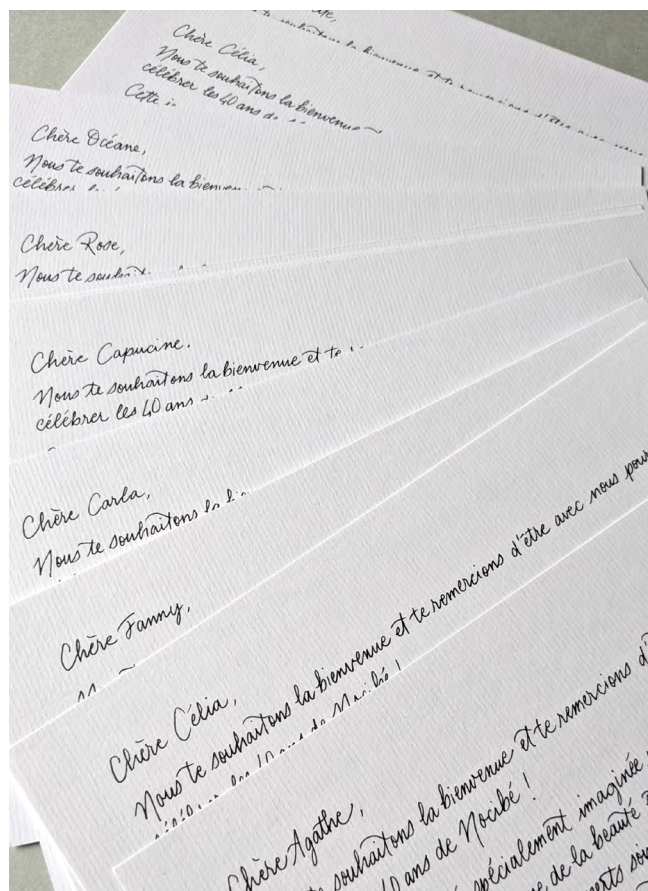 Nous te souhaitons la bienvenue et te remercions d'être avec nous
Chère Célia,
Nous te souhaitons la bienvenue
célébrer les 40 ans de
Cette
Chère Océane,
Nous te souhaitons la bienvenue
célébrer
Chère Rose,
Nous te souhait
Chère Capucine.
Nous te souhaitons la bienvenue et te
célébrer les 40 ans
Chère Carla,
Nous te souhaitons la bien
Chère Fanny,
Chère Célia,
Nous te souhaitons la bienvenue et te remercions d'être avec nous pour
célébrer les 40 ans de Nocibé !
Chère Agathe,
souhaitons la bienvenue et te remercions d'
40 ans de Nocibé !
spécialement imaginée
de la beauté